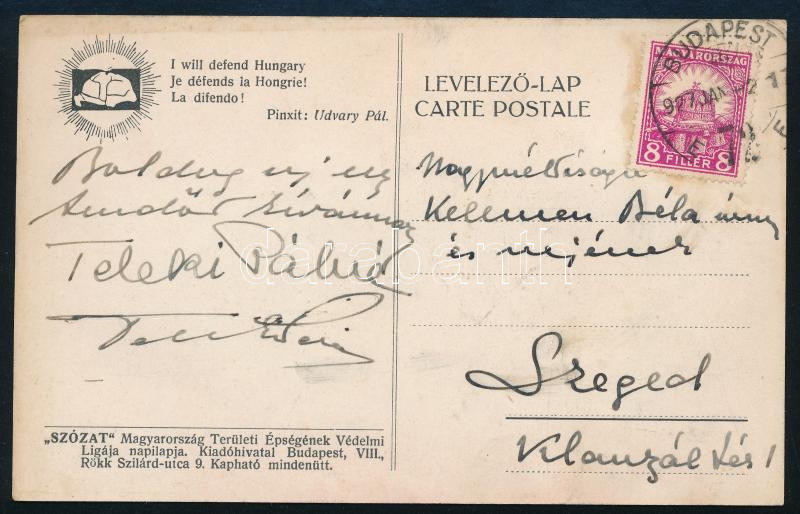 I will defend Hungary
Je défends la Hongrie!
La difendo!
Pinxit: Udvary Pál.
Boldog uj
esztendőt kívánnak
Teleki Pálné
"SZÓZAT" Magyarország Területi Épségének Védelmi
Ligája napilapja. Kiadóhivatal Budapest, VIII.,
Rökk Szilárd-utca 9. Kapható mindenütt.
LEVELEZŐ-LAP
CARTE POSTALE
BUDAPEST
927 JAN
MAGYARORSZÁG
8 FILLÉR 8
Kelemen Béla
és nejének
Szeged
Klauzál tér 1
darabanth